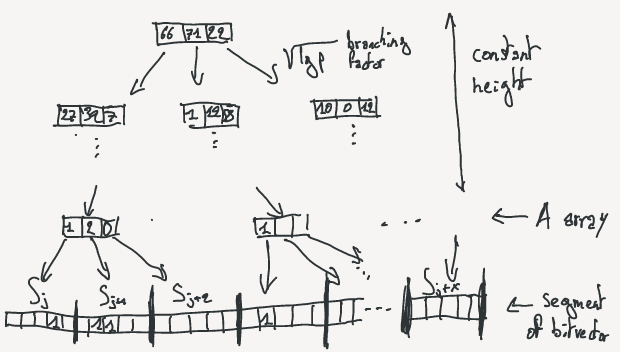 66 71 22
√lg p branching
factor
constant
height
27 39 7
1 19 8
10 0 12
1 2 0
1
A array
Sj
Sj+1
Sj+2
Sj+x
1
1 1
1
segment
of bitvector